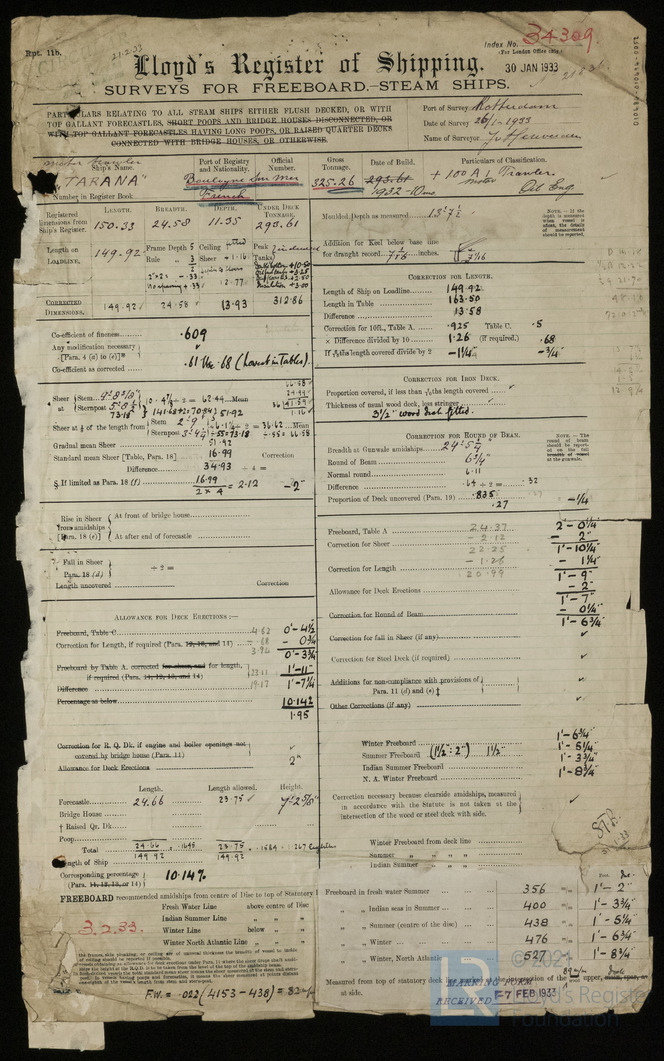 Rpt. 11b.
21.2.33
Index No. 34309
(For London Office only.)
Lloyd's Register of Shipping.
30 JAN 1933
SURVEYS FOR FREEBOARD.—STEAM SHIPS.
PARTICULARS RELATING TO ALL STEAM SHIPS EITHER FLUSH DECKED, OR WITH
TOP GALLANT FORECASTLES, SHORT POOPS AND BRIDGE HOUSES DISCONNECTED, OR
WITH TOP GALLANT FORECASTLES HAVING LONG POOPS, OR RAISED QUARTER DECKS
CONNECTED WITH BRIDGE HOUSES, OR OTHERWISE.
Port of Survey Rotterdam
Date of Survey 26/1-1933
Name of Surveyor
Motor Trawler
Ship's Name.
"TARANA"
Number in Register Book
Port of Registry and Nationality.
Boulogne Sur Mer
French
Official Number.
Gross Tonnage.
325.26
Date of Build.
293.61
1932-10mo
Particulars of Classification.
+ 100 A1 Trawler.
Motor Oil Eng
Registered Dimensions from Ship's Register.
LENGTH. 150.33
BREADTH. 24.58
DEPTH. 11.35
UNDER DECK TONNAGE. 293.61
Moulded Depth as measured 13' 7½"
NOTE.—If the depth is measured when vessel is afloat, the details of measurement should be reported.
Length on LOADLINE. 149.92
Frame Depth 5 Ceiling fitted
Rule 3 Sheer + 1.16
12.77
Peak Tanks
Addition for Keel below base line
for draught record 7/16 inches.
CORRECTED DIMENSIONS. 149.92 24.58 13.93 312.86
Co-efficient of fineness .609
Any modification necessary
[Para. 4 (a) to (e)]*
Co-efficient as corrected .61 Use .68 (lowest in Tables).
CORRECTION FOR LENGTH.
Length of Ship on Loadline 149.92
Length in Table 163.50
Difference 13.58
Correction for 10ft., Table A. .925 Table C. .5
× Difference divided by 10 1.26 (If required.) .68
If 6/10ths length covered divide by 2 -1¼" -¾"
CORRECTION FOR IRON DECK.
Proportion covered, if less than 7/10ths length covered
Thickness of usual wood deck, less stringer
3½" wood deck fitted.
Sheer at Stem 9'-8 5/8"
Sternpost 5'-8¼"
73.18
10-4 7/8 ÷ 2 = 62.44 Mean
141.68 ÷ 2 = 70.84 51.92
Sheer at ⅛ of the length from Stem 2'-9
Sternpost 3'-4¼
6'-1¼ ÷ 2 = 36.62 Mean
÷ .55 = 73.18 ÷ .55 = 66.58
Gradual mean Sheer 51.92
Standard mean Sheer [Table, Para. 18] 16.99 Correction
Difference 34.93 ÷ 4 =
§ If limited as Para. 18 (f) 16.99
2 × 4 = 2.12 -2"
CORRECTION FOR ROUND OF BEAM.
Breadth at Gunwale amidships
Round of Beam 6¾"
Normal round 6.11
Difference .64 ÷ 2 = .32
Proportion of Deck uncovered (Para. 19) .835
.27 -¼
NOTE.—The round of beam should be reported on the full breadth of vessel at the gunwale.
Rise in Sheer from amidships [Para. 18 (e)]
At front of bridge house
At after end of forecastle
Fall in Sheer
Para. 18 (d)
÷ 2 =
Length uncovered
Correction
Freeboard, Table A 24.37 2-0¼
Correction for Sheer -2.12 -2"
22.25 1'-10¼
Correction for Length -1.26 -1¼
20.99 1'-9"
Allowance for Deck Erections -2"
1'-7"
Correction for Round of Beam -0¼
1'-6¾"
Correction for fall in Sheer (if any)
Correction for Steel Deck (if required)
Additions for non-compliance with provisions of
Para. 11 (d) and (e)‡
Other Corrections (if any)
ALLOWANCE FOR DECK ERECTIONS:—
Freeboard, Table C 4.62 0'-4½
Correction for Length, if required (Para. 12, 13, and 14) .68 -0¾
0'-3¾
Freeboard by Table A. corrected for sheer, and for length,
if required (Para. 11, 12, 13, and 14) 23.11 1'-11"
Difference 19.17 1'-7¼
Percentage as below 10.14%
1.95
Correction for R. Q. Dk. if engine and boiler openings not
covered by bridge house (Para. 11)
Allowance for Deck Erections 2"
Winter Freeboard 1'-6¾"
Summer Freeboard (1½":2") 1½" 1'-5¼"
Indian Summer Freeboard 1'-3¾"
N. A. Winter Freeboard 1'-8¾"
Correction necessary because clearside amidships, measured
in accordance with the Statute is not taken at the
intersection of the wood or steel deck with side.
Winter Freeboard from deck line
Summer " " " "
Indian Summer " " "
Length. Length allowed. Height.
Forecastle 24.66 23.75 7'-2 5/8"
Bridge House
† Raised Qr. Dk.
Poop
Total 24.66 .1645 23.75 .1584
Length of Ship 149.92 149.92
Corresponding percentage
(Para. 11, 12, 13, or 14) 10.14%
FREEBOARD recommended amidships from centre of Disc to top of Statutory
Fresh Water Line above centre of Disc
Indian Summer Line " "
Winter Line below " "
Winter North Atlantic Line " "
3.2.33.
Freeboard in fresh water Summer 356 m/m 1'-2"
" " Indian seas in Summer 400 m/m 1'-3¾"
" " Summer (centre of the disc) 438 m/m 1'-5¼"
" " Winter 476 m/m 1'-6¾"
" " Winter North Atlantic Line 527 1'-8¾"
F.W. = .022 (4153-438) = 82 m/m
MARKING FORM
RECEIVED 7 FEB 1933
© 2021
Lloyd's Register
Foundation